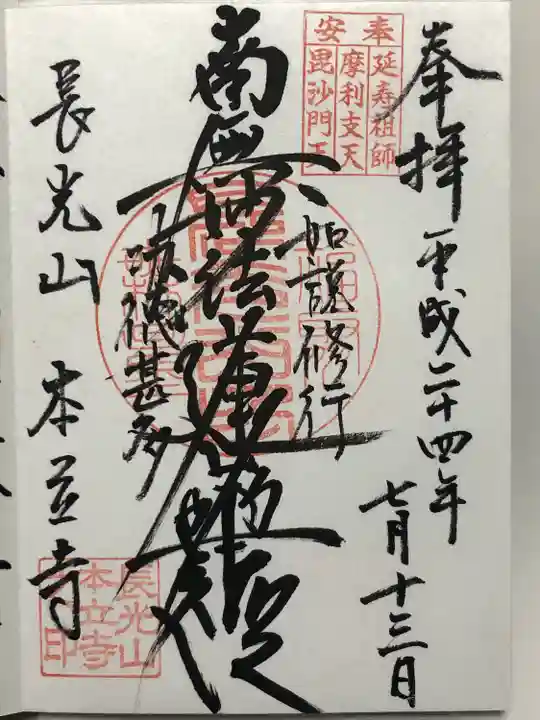 奉拝 平成二十四年
七月十三日
奉安
延寿祖師
摩利支天
毘沙門天
南無妙法蓮華経
如説修行
功徳甚多
長光山 本立寺
長光山
本立寺
印